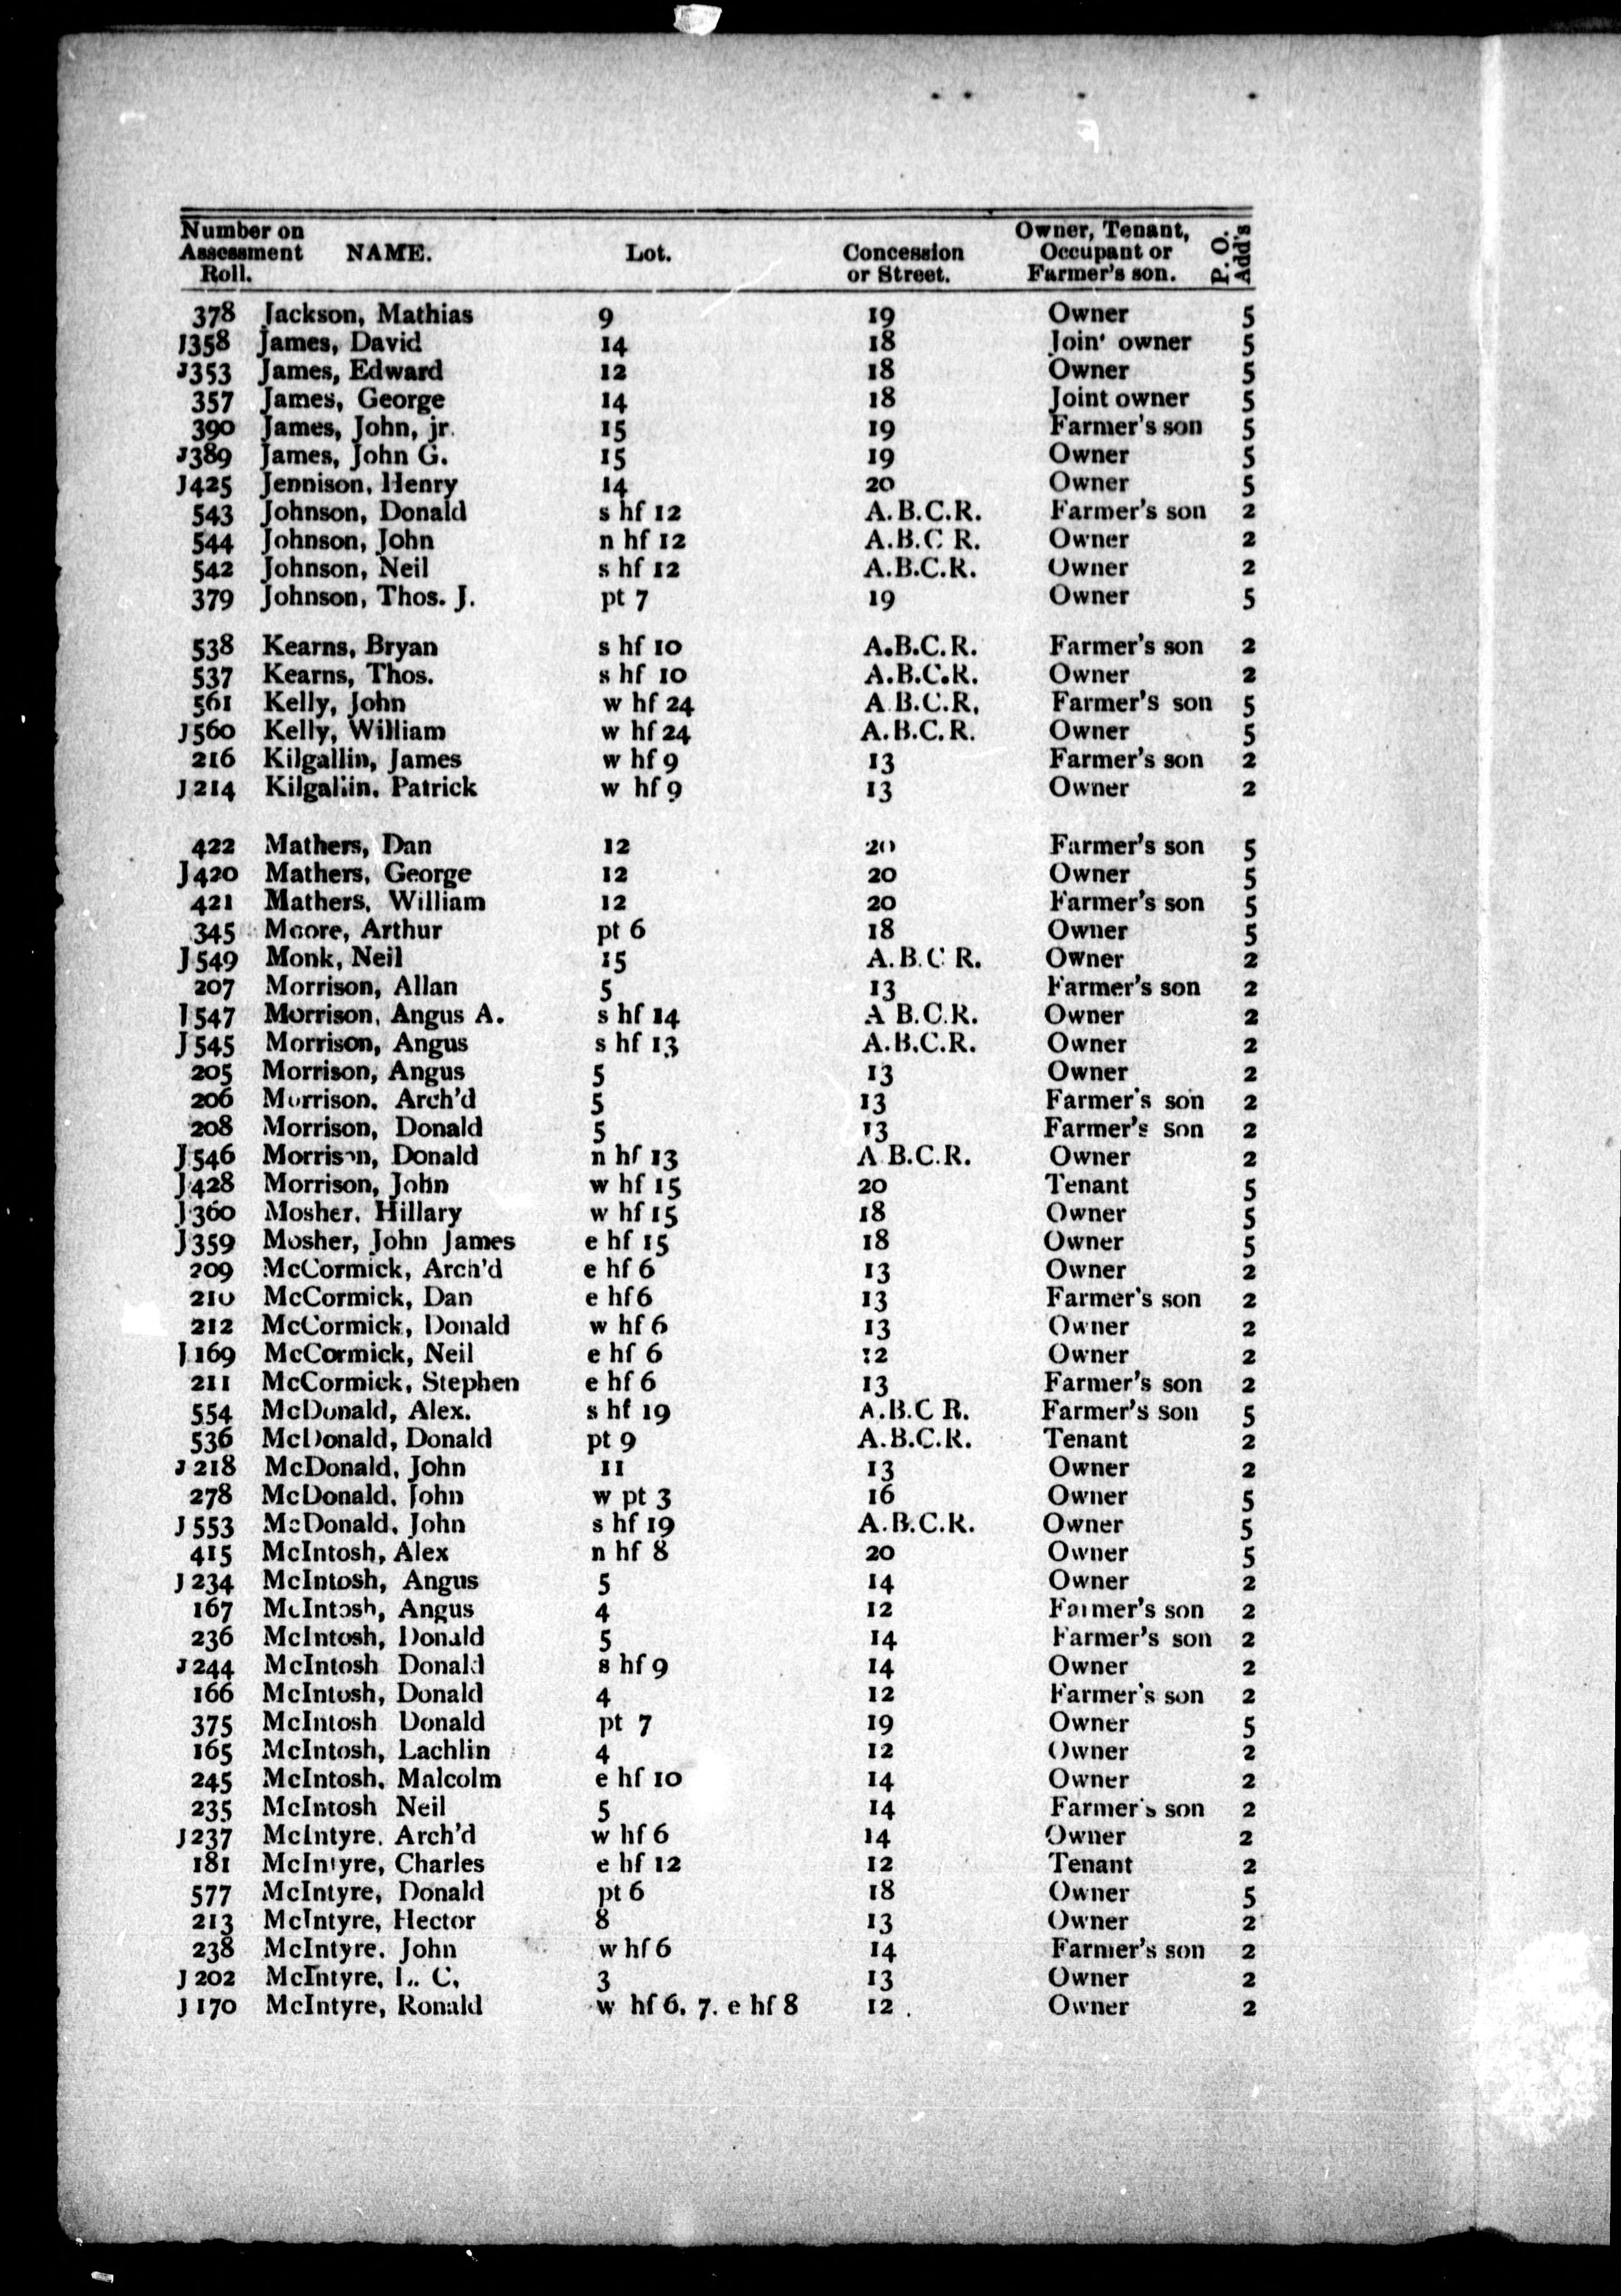 Number on Assessment Roll. NAME. Lot. Concession or Street. Owner, Tenant, Occupant or Farmer's son. P. O. Add's
378 Jackson, Mathias 9 19 Owner 5
J358 James, David 14 18 Join' owner 5
J353 James, Edward 12 18 Owner 5
357 James, George 14 18 Joint owner 5
390 James, John, jr. 15 19 Farmer's son 5
J389 James, John G. 15 19 Owner 5
J425 Jennison, Henry 14 20 Owner 5
543 Johnson, Donald s hf 12 A.B.C.R. Farmer's son 2
544 Johnson, John n hf 12 A.B.C R. Owner 2
542 Johnson, Neil s hf 12 A.B.C.R. Owner 2
379 Johnson, Thos. J. pt 7 19 Owner 5
538 Kearns, Bryan s hf 10 A.B.C.R. Farmer's son 2
537 Kearns, Thos. s hf 10 A.B.C.R. Owner 2
561 Kelly, John w hf 24 A B.C.R, Farmer's son 5
J560 Kelly, William w hf 24 A.B.C.R. Owner 5
216 Kilgallin, James w hf 9 13 Farmer's son 2
J 214 Kilgallin, Patrick w hf 9 13 Owner 2
422 Mathers, Dan 12 20 Farmer's son 5
J 420 Mathers, George 12 20 Owner 5
421 Mathers, William 12 20 Farmer's son 5
345 Moore, Arthur pt 6 18 Owner 5
J 549 Monk, Neil 15 A.B.C R. Owner 2
207 Morrison, Allan 5 13 Farmer's son 2
J 547 Morrison, Angus A. s hf 14 A B.C.R. Owner 2
J 545 Morrison, Angus s hf 13 A.B.C.R. Owner 2
205 Morrison, Angus 5 13 Owner 2
206 Morrison, Arch'd 5 13 Farmer's son 2
208 Morrison, Donald 5 13 Farmer's son 2
J 546 Morrison, Donald n hf 13 A B.C.R. Owner 2
J 428 Morrison, John w hf 15 20 Tenant 5
J 360 Mosher, Hillary w hf 15 18 Owner 5
J 359 Mosher, John James e hf 15 18 Owner 5
209 McCormick, Arch'd e hf 6 13 Owner 2
210 McCormick, Dan e hf 6 13 Farmer's son 2
212 McCormick, Donald w hf 6 13 Owner 2
J 169 McCormick, Neil e hf 6 12 Owner 2
211 McCormick, Stephen e hf 6 13 Farmer's son 2
554 McDonald, Alex. s hf 19 A.B.C R. Farmer's son 5
536 McDonald, Donald pt 9 A.B.C.R. Tenant 2
J 218 McDonald, John 11 13 Owner 2
278 McDonald, John w pt 3 16 Owner 5
J 553 McDonald, John s hf 19 A.B.C.R. Owner 5
415 McIntosh, Alex n hf 8 20 Owner 5
J 234 McIntosh, Angus 5 14 Owner 2
167 McIntosh, Angus 4 12 Farmer's son 2
236 McIntosh, Donald 5 14 Farmer's son 2
J 244 McIntosh Donald s hf 9 14 Owner 2
166 McIntosh, Donald 4 12 Farmer's son 2
375 McIntosh Donald pt 7 19 Owner 5
165 McIntosh, Lachlin 4 12 Owner 2
245 McIntosh, Malcolm e hf 10 14 Owner 2
235 McIntosh Neil 5 14 Farmer's son 2
J 237 McIntyre, Arch'd w hf 6 14 Owner 2
181 McIntyre, Charles e hf 12 12 Tenant 2
577 McIntyre, Donald pt 6 18 Owner 5
213 McIntyre, Hector 8 13 Owner 2
238 McIntyre. John w hf 6 14 Farmer's son 2
J 202 McIntyre, L. C, 3 13 Owner 2
J 170 McIntyre, Ronald w hf 6, 7. e hf 8 12 Owner 2